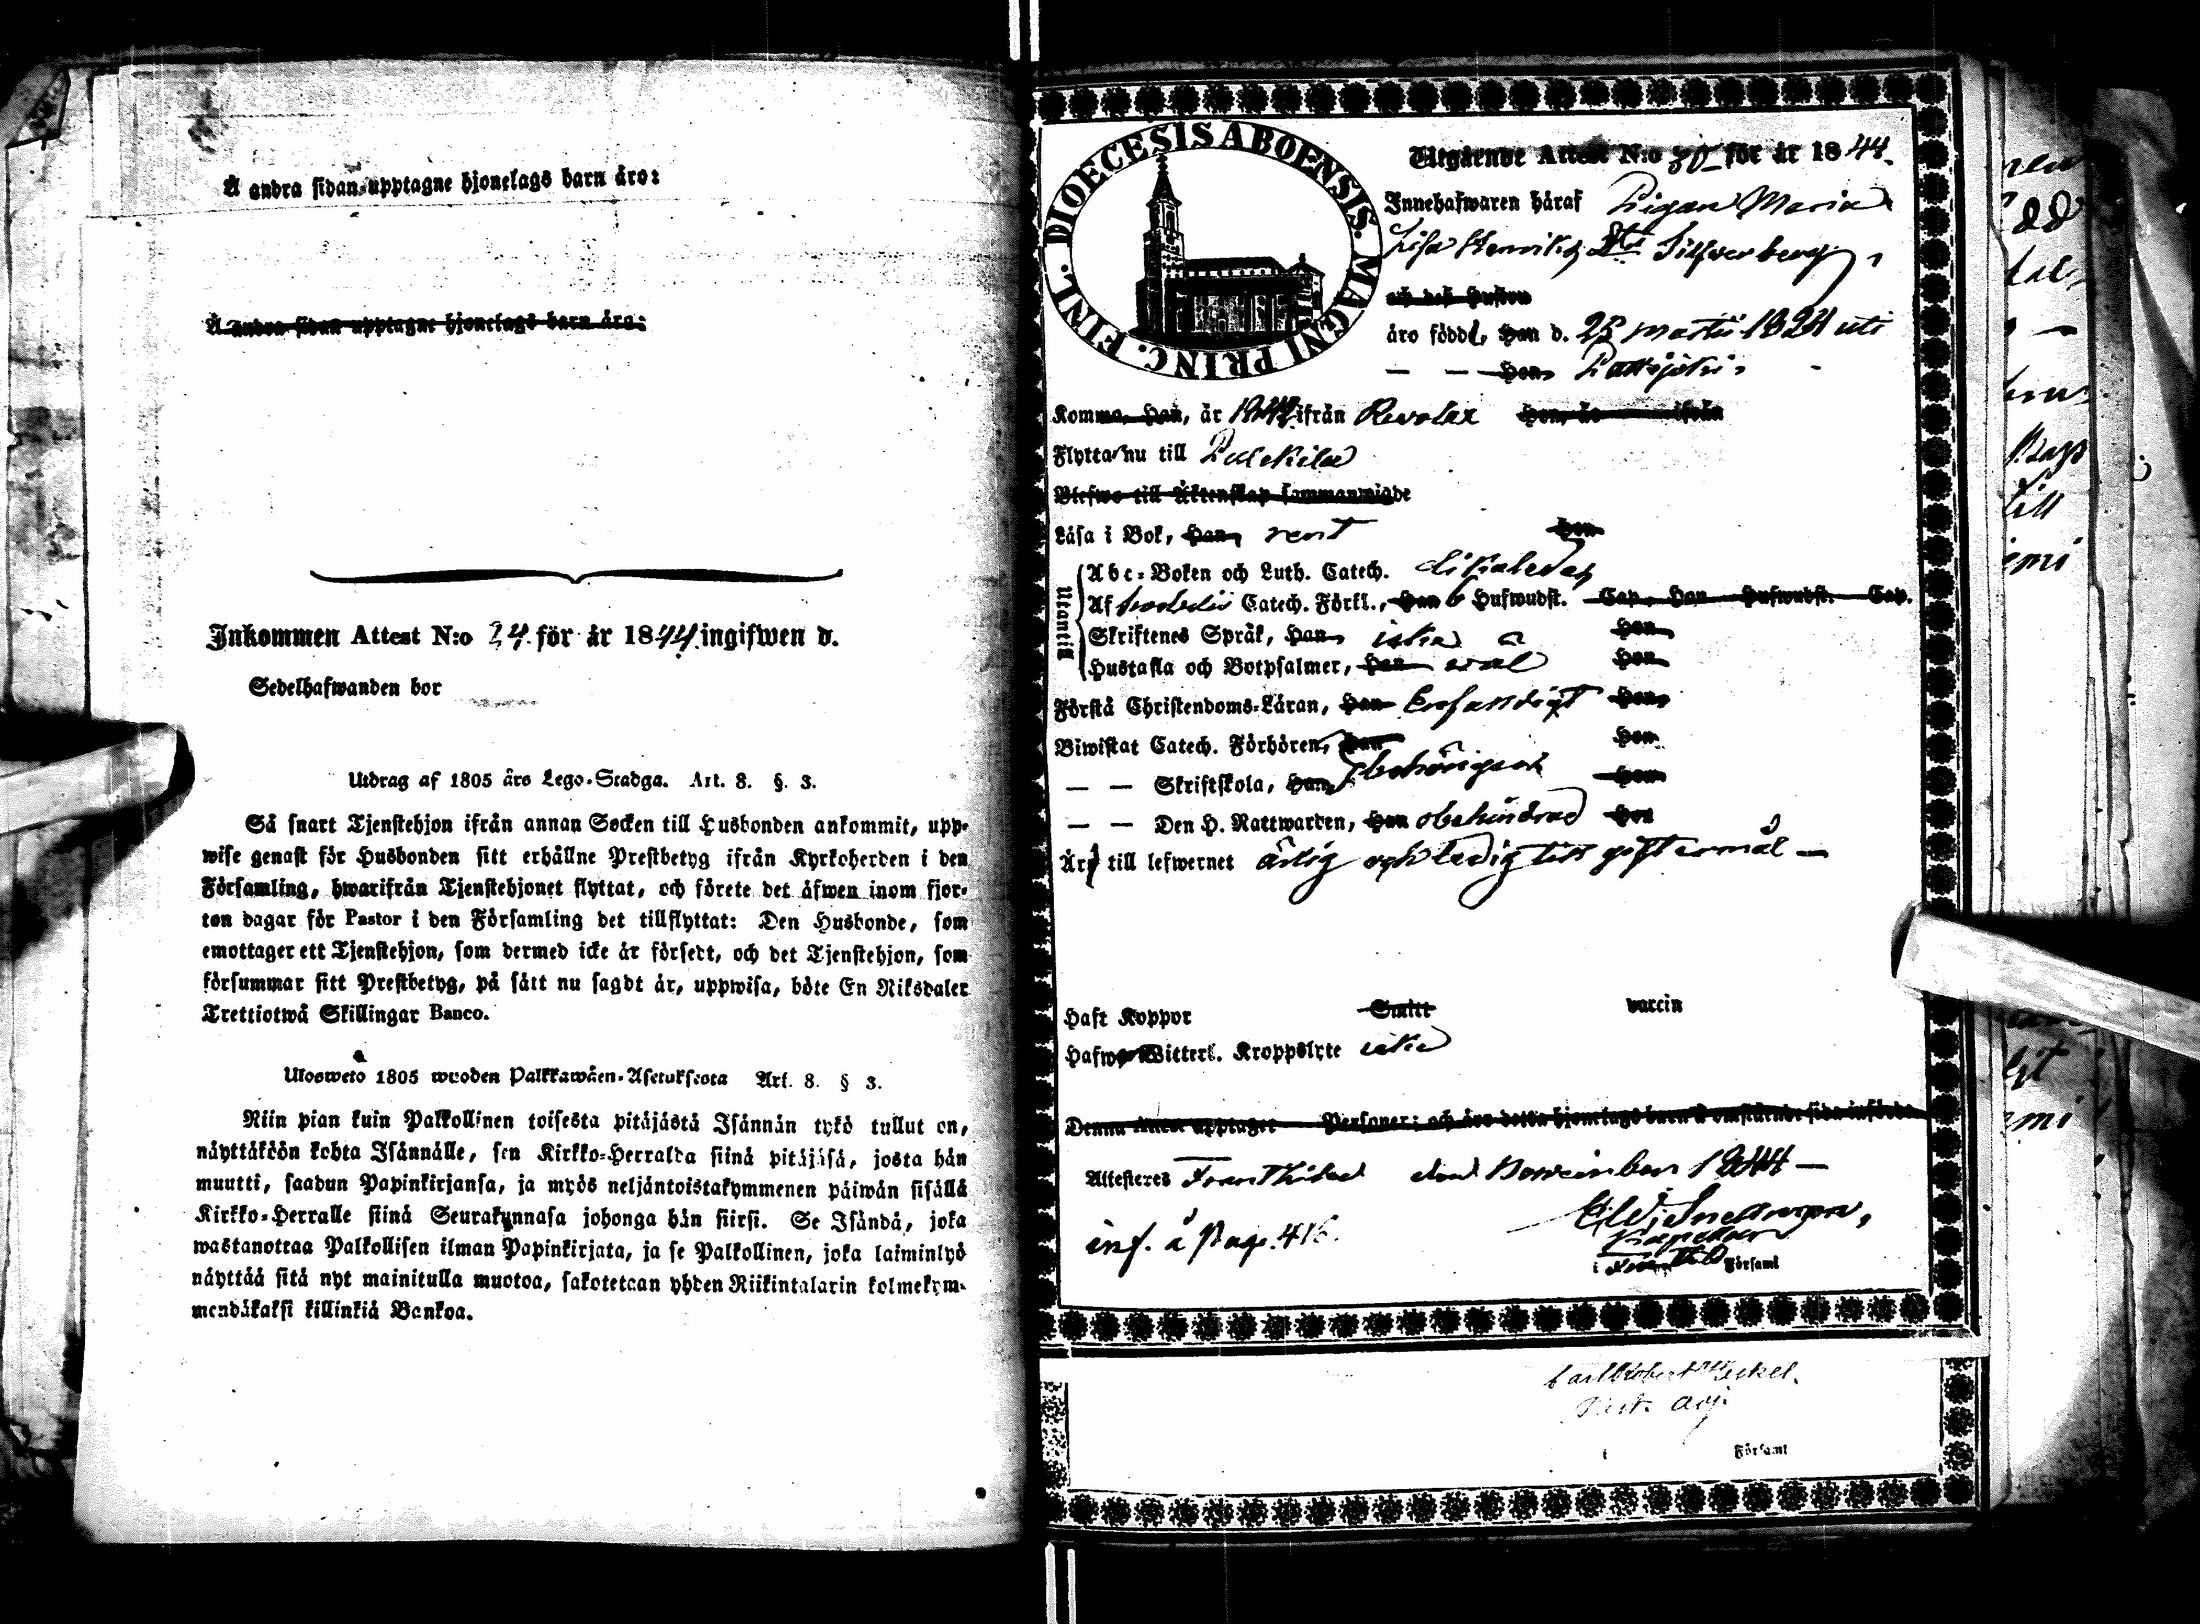 Å andra sidan upptagne hjonelags barn äro:
Å andra sidan upptagne hjonelags barn äro:
Inkommen Attest N:o 24 för år 1844 ingifwen d.
Sedelhafwanden bor
Utdrag af 1805 års Lego-Stadga. Art. 8. §. 3.
Så snart Tjenstehjon ifrån annan Socken till Husbonden ankommit, upp-
wise genast för Husbonden sitt erhållne Prestbetyg ifrån Kyrkoherden i den
Församling, hwarifrån Tjenstehjonet flyttat, och förete det äfwen inom fjor-
ton dagar för Pastor i den Församling det tillflyttat: Den Husbonde, som
emottager ett Tjenstehjon, som dermed icke är försedt, och det Tjenstehjon, som
försummar sitt Prestbetyg, på sätt nu sagdt är, uppwisa, böte En Riksdaler
Trettiotwå Skillingar Banco.
Ulosweto 1805 wuoden Palkkawäen-Asetuksesta Art. 8. § 3.
Niin pian kuin Palkollinen toisesta pitäjästä Isännän tykö tullut on,
näyttäköön kohta Isännälle, sen Kirkko-Herralta siinä pitäjäsä, josta hän
muutti, saadun Papinkirjansa, ja myös neljäntoistakymmenen päiwän sisällä
Kirkko-Herralle siinä Seurakunnasa johonga hän siirsi. Se Isändä, joka
wastanottaa Palkollisen ilman Papinkirjata, ja se Palkollinen, joka laiminlyö
näyttää sitä nyt mainitulla muotoa, sakotetaan yhden Riikintalarin kolmekym-
mendäkaksi killinkiä Bankoa.
DIOECESIS ABOENSIS. MAGNI PRINC. FINL.
Utgående Attest N:o 30 för år 1844.
Innehafwaren häraf Pigan Maria
Lisa Henriks Dtr Silfverberg,
och des Hustru
äro född, Han d. 25 martii 1824 uti
— — Hon, Pattijoki.
Komma, Han, år 1844 ifrån Revolax Hon, år ifrån
Flytta nu till Pulkila
Blefwo till Äktenskap sammanwigde
Läsa i Bok, Han, rent Hon
Utantill
Abc-Boken och Luth. Catech.
Af Catech. Förkl., Han 6 Hufwudst. Cap. Hon Hufwudst. Cap.
Skriftenes Språk, Han, icke Hon,
Hustafla och Botpsalmer, Han Hon
Förstå Christendoms-Läran, Han Enfaldigt Hon,
Biwistat Catech. Förhören, Han Hon
— — Skriftskola, Han, behörigen Hon
— — Den H. Nattwarden, Han obehindrad Hon
Är till lefwernet ärlig och ledig till giftermål —
Haft Koppor Smitt vaccin
Hafwa Witterl. Kroppslyte icke
Denna Attest upptager Personer; och äro detta hjonelags barn å omstående sida införde
Attesteres Frantsila den November 1844 —
inf. å Pag. 416.
Snellman,
Kapellan
i Frantsila Församl
Carl Robert
adj.
i Församl